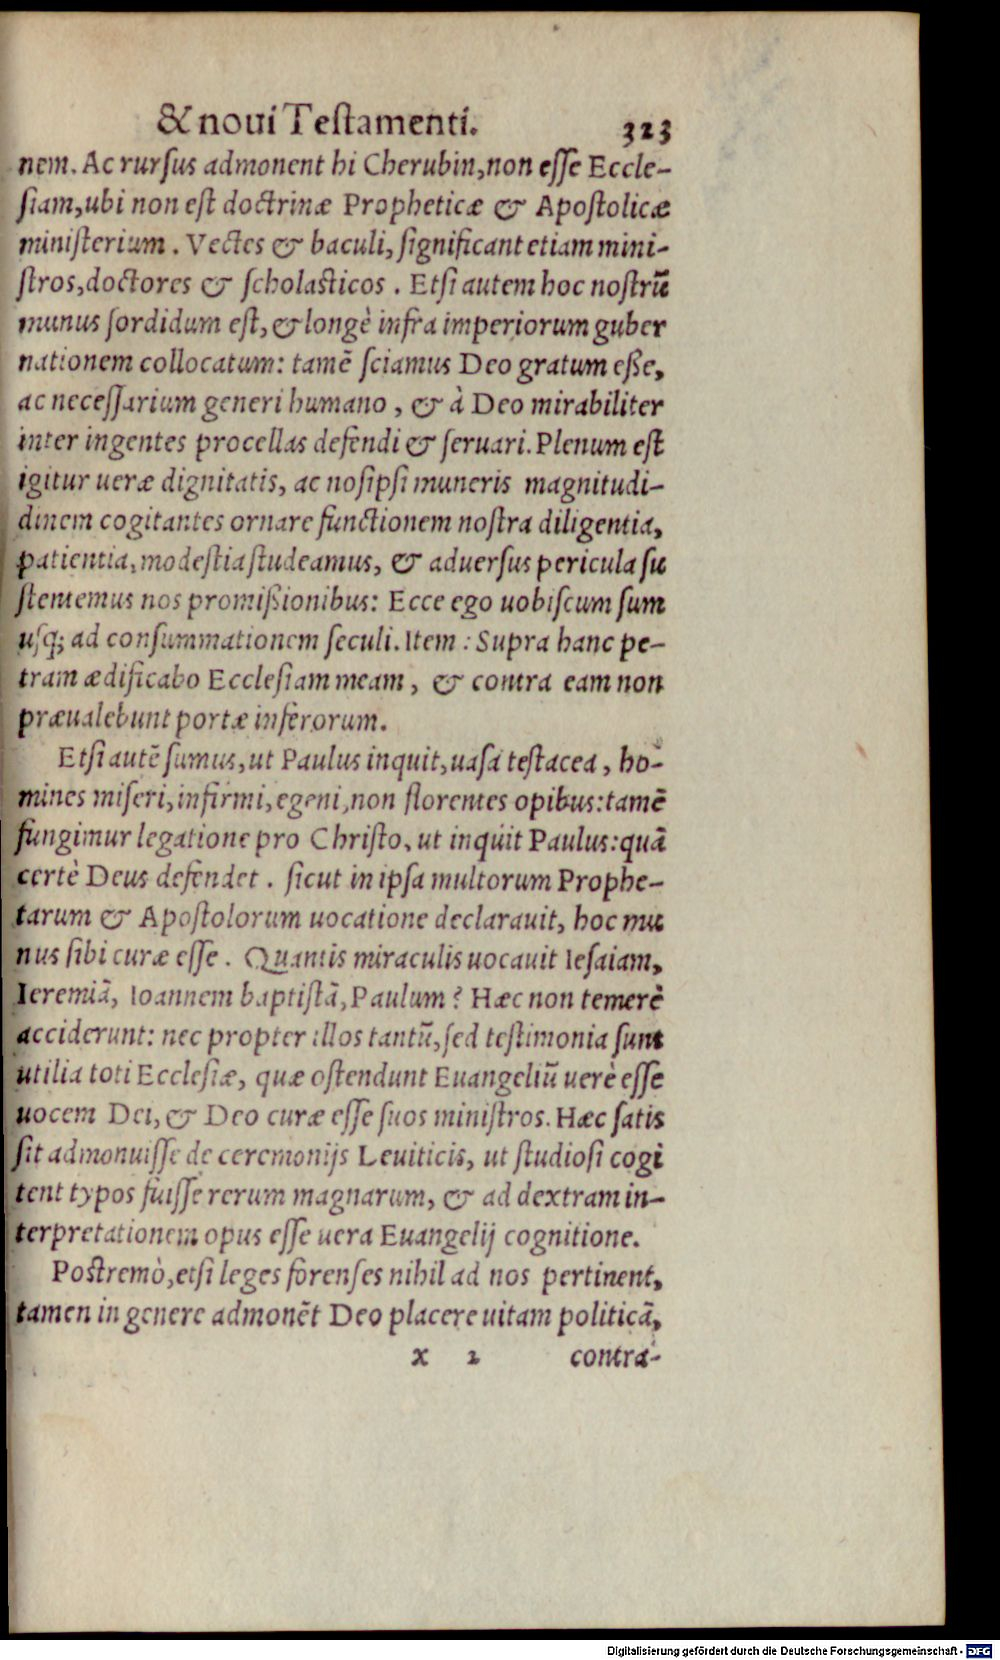 & noui Teſtamenti. 323
nem. Ac rurſus admonent hi Cherubin, non eſſe Eccle-
ſiam, ubi non eſt doctrinæ Propheticæ & Apoſtolicæ
miniſterium. Vectes & baculi, ſignificant etiam mini-
ſtros, doctores & ſcholaſticos. Etſi autem hoc noſtrũ
munus ſordidum eſt, & longè infra imperiorum guber
nationem collocatum: tamẽ ſciamus Deo gratum eße,
ac neceſſarium generi humano, & à Deo mirabiliter
inter ingentes procellas defendi & ſeruari. Plenum eſt
igitur ueræ dignitatis, ac noſipſi muneris magnitudi-
dinem cogitantes ornare functionem noſtra diligentia,
patientia, modeſtia ſtudeamus, & aduerſus pericula ſu
ſtentemus nos promißionibus: Ecce ego uobiſcum ſum
uſq; ad conſummationem ſeculi. Item: Supra hanc pe-
tram ædificabo Eccleſiam meam, & contra eam non
præualebunt portæ inferorum.
Etſi autẽ ſumus, ut Paulus inquit, uaſa teſtacea, ho-
mines miſeri, infirmi, egeni, non florentes opibus: tamẽ
fungimur legatione pro Chriſto, ut inquit Paulus: quã
certè Deus defendet. ſicut in ipſa multorum Prophe-
tarum & Apoſtolorum uocatione declarauit, hoc mu
nus ſibi curæ eſſe. Quantis miraculis uocauit Ieſaiam,
Ieremiã, Ioannem baptiſtã, Paulum? Hæc non temerè
acciderunt: nec propter illos tantũ, ſed teſtimonia ſunt
utilia toti Eccleſiæ, quæ oſtendunt Euangeliũ uerè eſſe
uocem Dei, & Deo curæ eſſe ſuos miniſtros. Hæc ſatis
ſit admonuiſſe de ceremonijs Leuiticis, ut ſtudioſi cogi
tent typos fuiſſe rerum magnarum, & ad dextram in-
terpretationem opus eſſe uera Euangelij cognitione.
Poſtremò, etſi leges forenſes nihil ad nos pertinent,
tamen in genere admonẽt Deo placere uitam politicã,
x 2 contra-
Digitalisierung gefördert durch die Deutsche Forschungsgemeinschaft - DFG